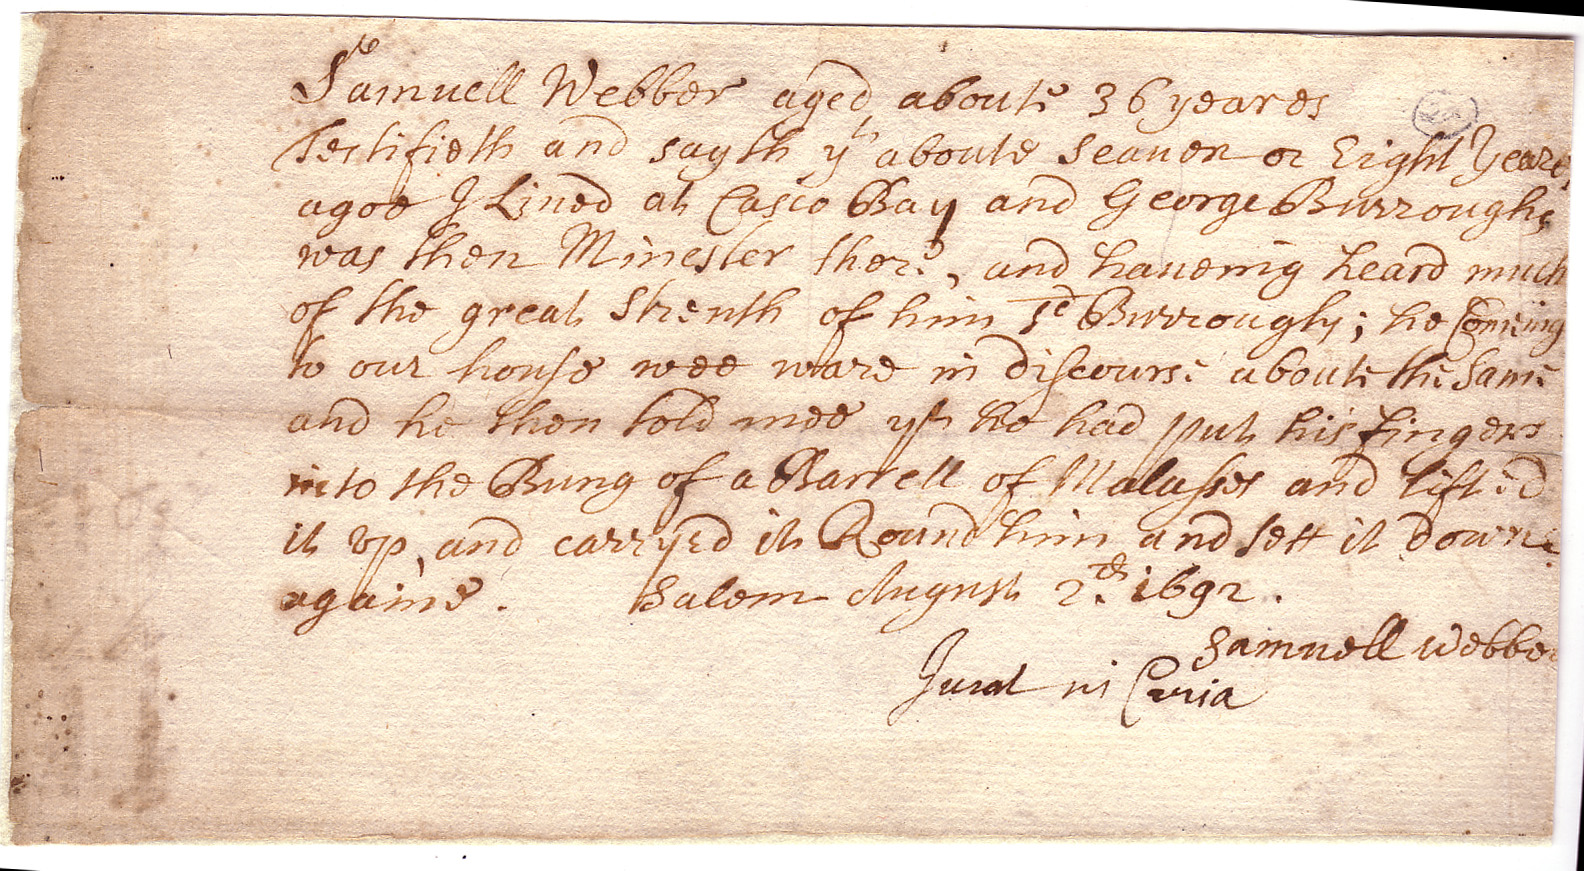 Samuell Webber aged aboute 36 yeares
Testifieth and sayth yt aboute seauen or Eight Yeares
agoe I Liued at Casco Bay and George Burroughs
was then Minester there, and haueing heard much
of the great strenth of him sd Burroughs; he Comeing
to our house wee ware in discourse aboute the same
and he then told mee yt he had put his fingers
into the Bung of a Barrell of Malasses and lifted
it vp, and carryed it Round him and sett it downe
againe. Salem August 2d: 1692.
Samuell Webber
Jurat in Curia